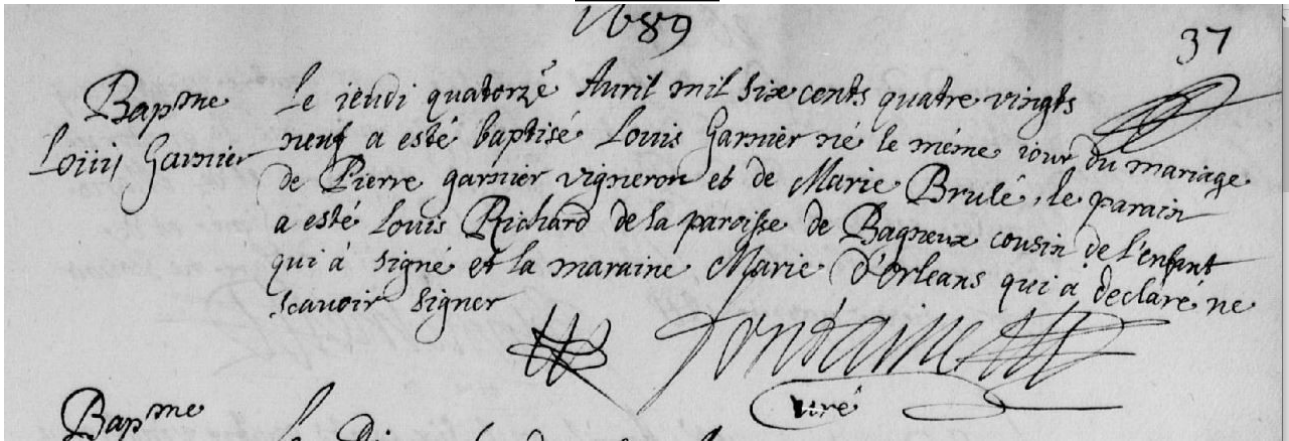 1689
37
Bap^me
Louis Garnier
Le ieudi quatorze Avril mil six cents quatre vingts
neuf a esté baptisé Louis Garnier né le méme iour du mariage
de Pierre garnier vigneron et de Marie Brulé, le parain
a esté Louis Richard de la paroisse de Bagneux cousin de l'enfant
qui à signé et la maraine Marie d'Orleans qui a declaré ne
scavoir signer
Fontaine
curé
Bap^me